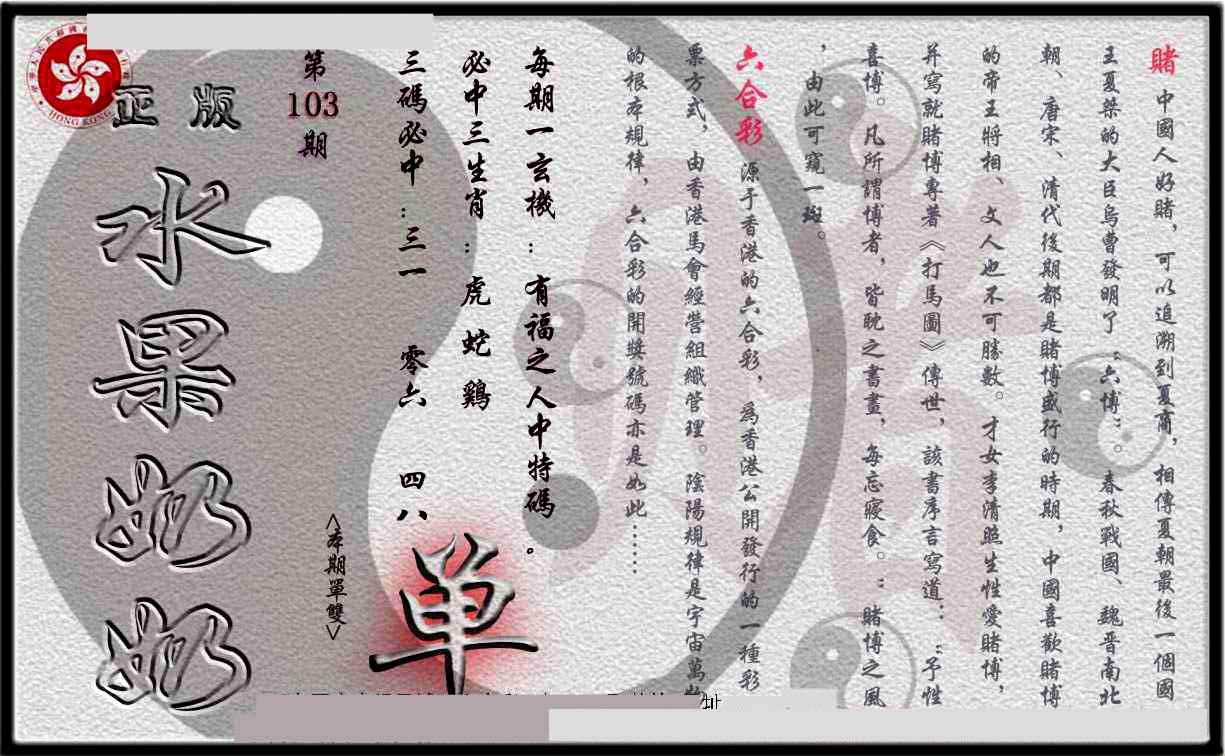 賭 中國人好賭，可以追溯到夏商，相傳夏朝最後一個國
王夏桀的大臣烏曹發明了“六博”。春秋戰國、魏晋南北
朝、唐宋、清代後期都是賭博盛行的時期，中國喜歡賭博
的帝王將相、文人也不可勝數。才女李清照生性愛賭博，
并寫就賭博專著《打馬圖》傳世，該書序言寫道：“予性
喜博。凡所謂博者，皆眈之書畫，每忘寢食。”賭博之風
，由此可窺一斑。
六合彩 源于香港的六合彩，爲香港公開發行的一種彩
票方式，由香港馬會經營組織管理。陰陽規律是宇宙萬物
的根本規律，六合彩的開獎號碼亦是如此……
每期一玄機：有福之人中特碼。
必中三生肖：虎 蛇 鷄
三碼必中：三一 零六 四八
單
<本期單雙>
第
103
期
正版
水果奶奶
HONG KONG